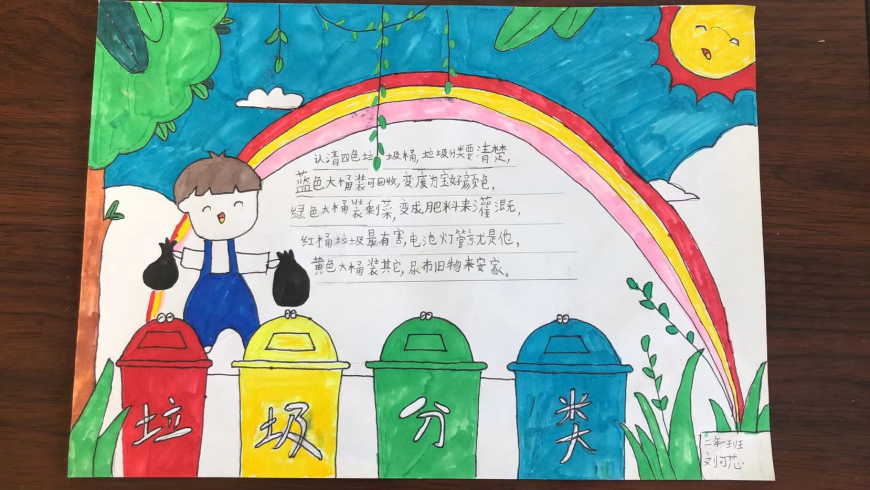 认清四色垃圾桶,垃圾分类要清楚,
蓝色大桶装可回收,变废为宝好颜色,
绿色大桶装剩菜,变成肥料来灌溉,
红桶垃圾最有害,电池灯管就是他,
黄色大桶装其它,尿布旧物来安家。
垃 圾 分 类
二年一班
刘可芯